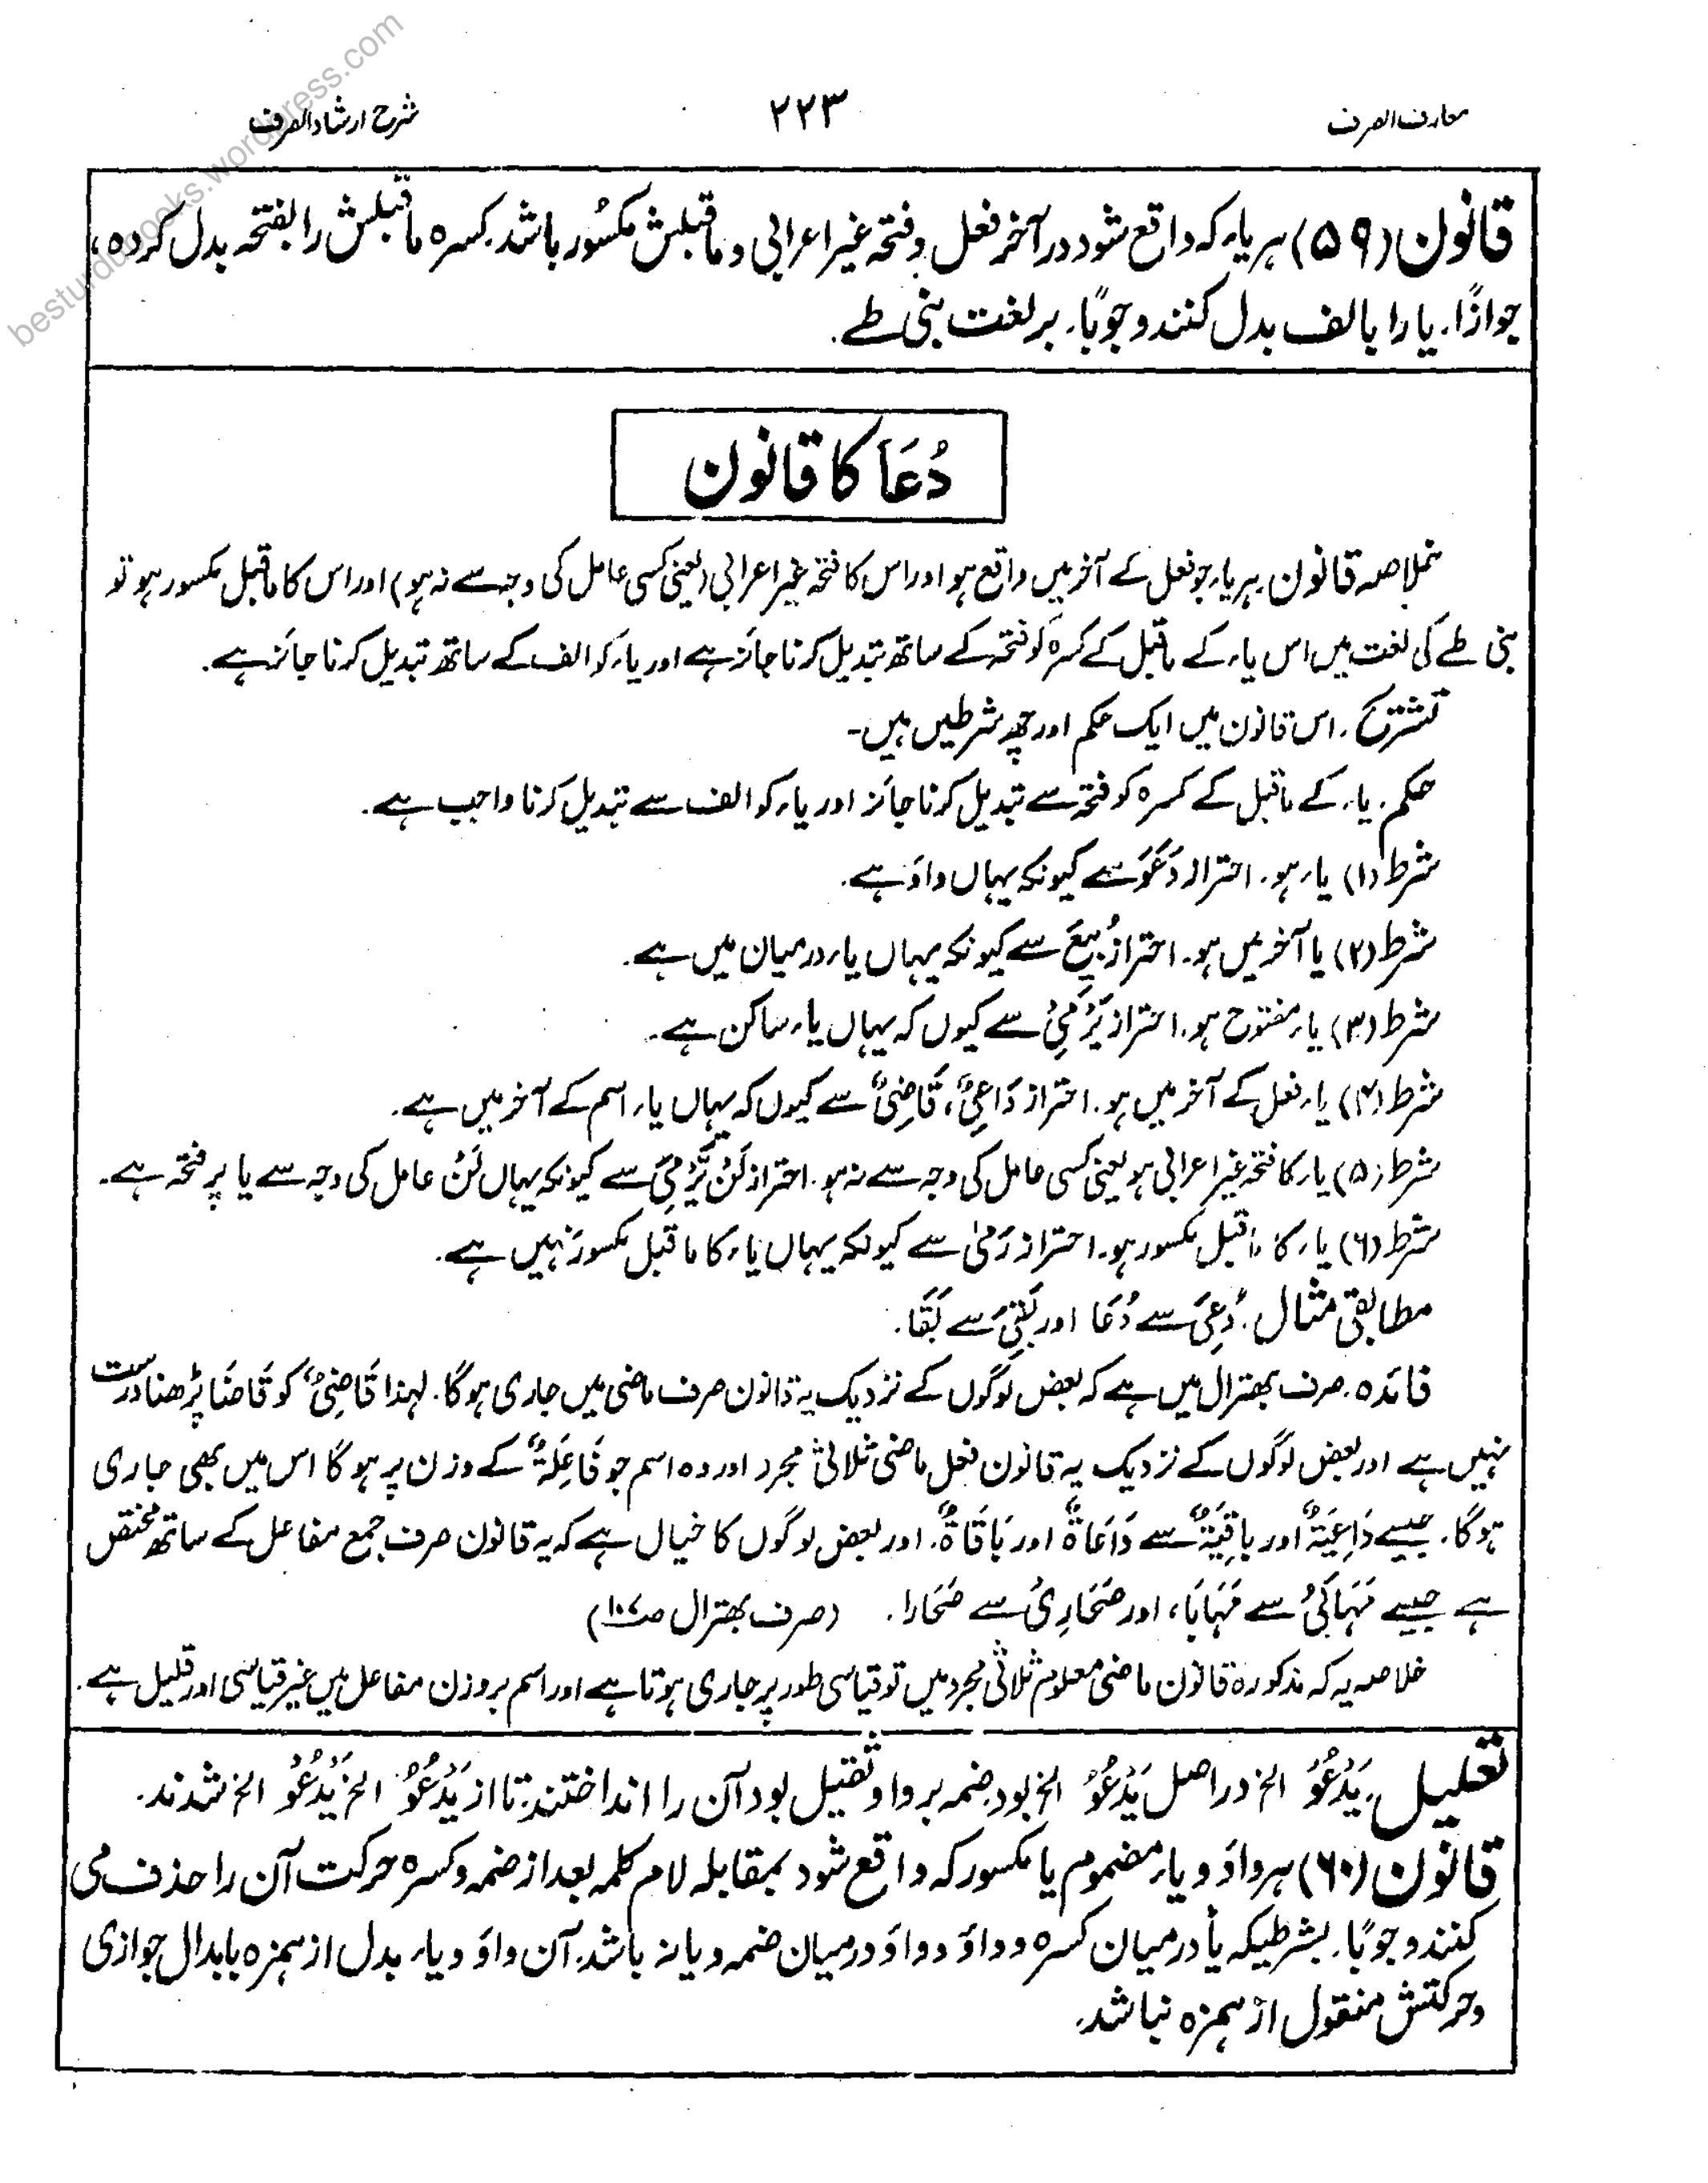 معارف الصرف
۲۲۳
شرح ارشاد الصرف
besturdubooks.wordpress.com
قانون (۵۹) ہر یاء کہ واقع شود در آخر فعل وفتحہ غیر اعرابی و ماقبلش مکسُور باشد کسرہ ماقبلش را بفتحہ بدل کردہ،
جوازًا، یا را با الف بدل کنند وجوبًا۔ بر لغت بنی طے۔
دُعَا کا قانون
خلاصہ قانون۔ ہر یاء جو فعل کے آخر میں واقع ہو اور اس کا فتحہ غیر اعرابی (یعنی کسی عامل کی وجہ سے نہ ہو) اور اس کا ماقبل مکسور ہو تو
بنی طے کی لغت میں اس یاء کے ماقبل کے کسرہ کو فتحہ کے ساتھ تبدیل کرنا جائز ہے اور یاء کو الف کے ساتھ تبدیل کرنا جائز ہے۔
تشریح۔ اس قانون میں ایک حکم اور چھ شرطیں ہیں۔
حکم۔ یاء کے ماقبل کے کسرہ کو فتحہ سے تبدیل کرنا جائز اور یاء کو الف سے تبدیل کرنا واجب ہے۔
شرط (۱) یاء ہو۔ احتراز دَعَوَ سے کیونکہ یہاں واؤ ہے۔
شرط (۲) یا آخر میں ہو۔ احتراز بُیِعَ سے کیونکہ یہاں یاء درمیان میں ہے۔
شرط (۳) یاء مفتوح ہو۔ احتراز یَرْمِیْ سے کیوں کہ یہاں یاء ساکن ہے۔
شرط (۴) یاء فعل کے آخر میں ہو۔ احتراز دَاعِیٌ، قَاضِیٌ سے کیوں کہ یہاں یاء اسم کے آخر میں ہے۔
شرط (۵) یاء کا فتحہ غیر اعرابی ہو یعنی کسی عامل کی وجہ سے نہ ہو۔ احتراز لَنْ یَّرْمِیَ سے کیونکہ یہاں لَنْ عامل کی وجہ سے یا پر فتحہ ہے۔
شرط (۶) یاء کا ماقبل مکسور ہو۔ احتراز رَمٰی سے کیونکہ یہاں یاء کا ماقبل مکسور نہیں ہے۔
مطابقی مثال۔ دُعِیَ سے دُعَا اور بَقِیَ سے بَقَا۔
فائدہ۔ صرف بھترال میں ہے کہ بعض لوگوں کے نزدیک یہ قانون صرف ماضی میں جاری ہو گا۔ لہٰذا قَاضِیٌ کو قَاضَا پڑھنا درست
نہیں ہے اور بعض لوگوں کے نزدیک یہ قانون فعل ماضی ثلاثی مجرد اور وہ اسم جو فَاعِلَۃٌ کے وزن پر ہو گا اس میں بھی جاری
ہو گا۔ جیسے دَاعِیَۃٌ اور بَاقِیَۃٌ سے دَاعَاۃٌ اور بَاقَاۃٌ۔ اور بعض لوگوں کا خیال ہے کہ یہ قانون صرف جمع مفاعل کے ساتھ مختص
ہے جیسے مَہَابِیُ سے مَہَابَا، اور صَحَارِیُ سے صَحَارَا۔ (صرف بھترال ص۱۰۷)
خلاصہ یہ کہ مذکورہ قانون ماضی معلوم ثلاثی مجرد میں تو قیاسی طور پر جاری ہوتا ہے اور اسم بروزن مفاعل میں غیر قیاسی اور قلیل ہے۔
تعلیل۔ یَدْعُوْ الخ دراصل یَدْعُوُ الخ بود ضمہ بر واؤ ثقیل بود آن را انداختند تا از یَدْعُوُ الخ یَدْعُوْ الخ شدند۔
قانون (۶۰) ہر واؤ و یاء مضموم یا مکسور کہ واقع شود بمقابلہ لام کلمہ بعد از ضمہ وکسرہ حرکت آن را حذف می
کنند وجوبًا۔ بشرطیکہ یا درمیان کسرہ و واؤ و واؤ درمیان ضمہ و یا نہ باشد۔ آن واؤ و یاء بدل از ہمزہ بابدال جوازی
وحرکتش منقول از ہمزہ نباشد۔